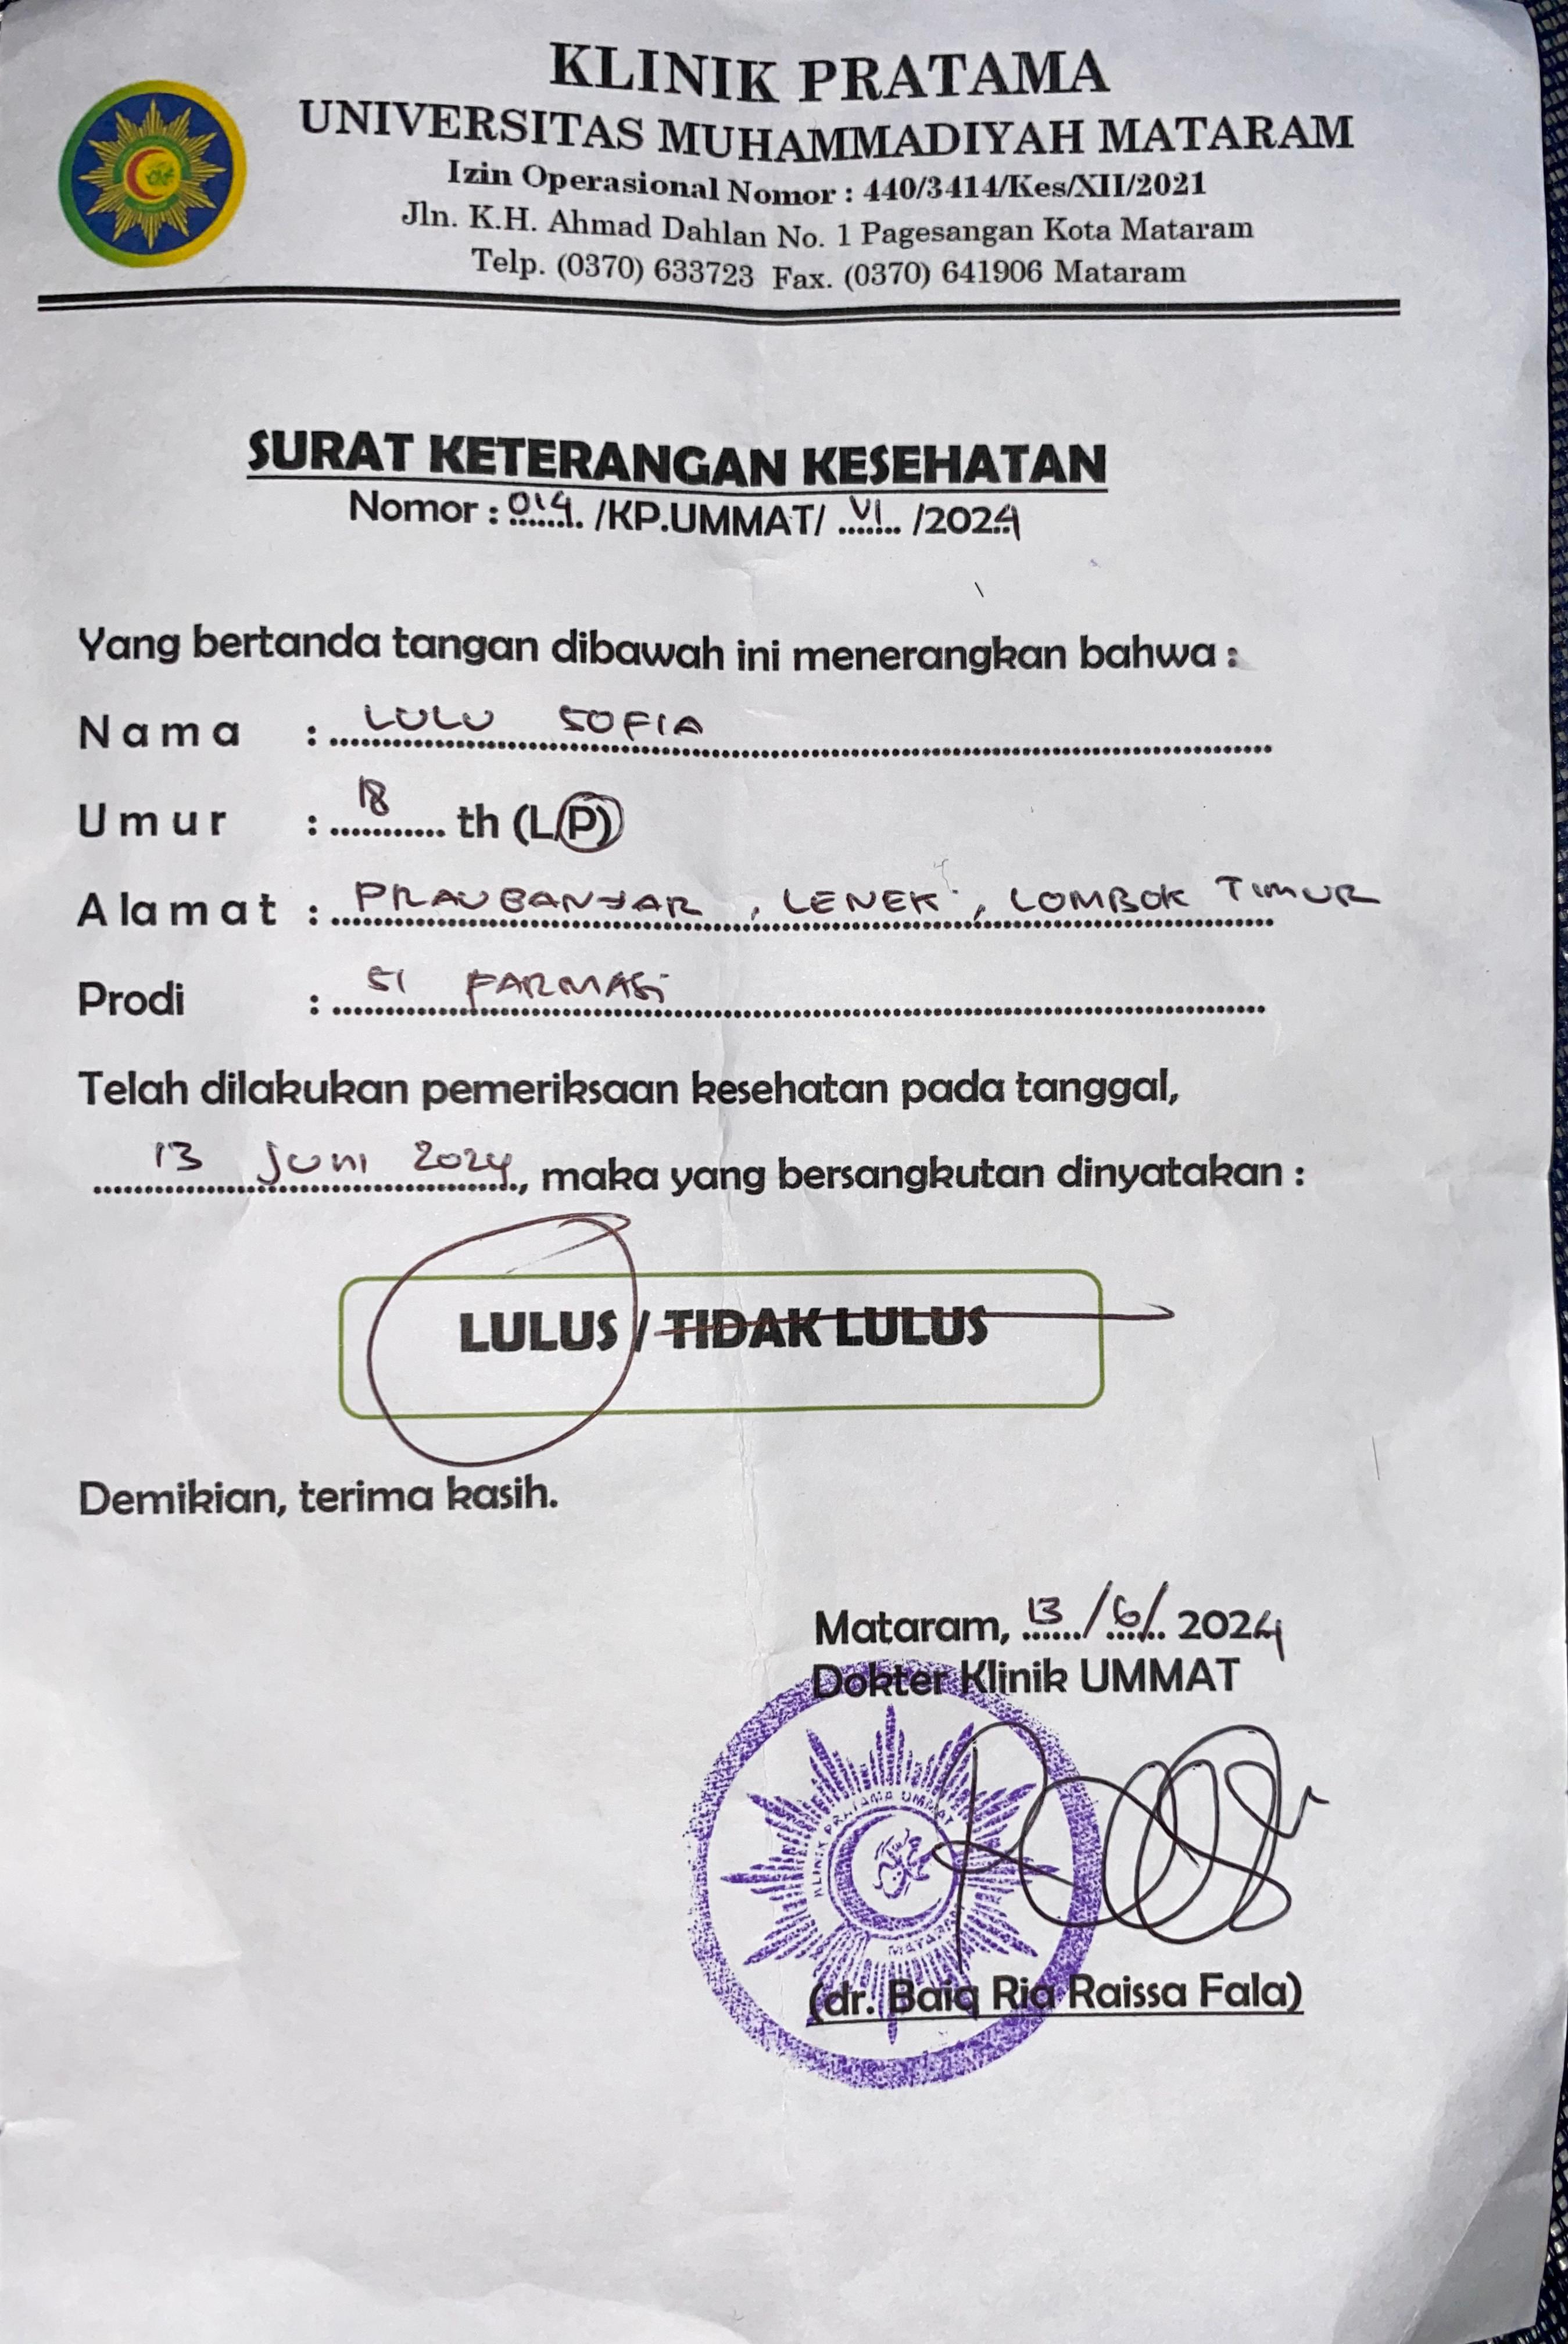 KLINIK PRATAMA
UNIVERSITAS MUHAMMADIYAH MATARAM
Izin Operasional Nomor : 440/3414/Kes/XII/2021
Jln. K.H. Ahmad Dahlan No. 1 Pagesangan Kota Mataram
Telp. (0370) 633723 Fax. (0370) 641906 Mataram
SURAT KETERANGAN KESEHATAN
Nomor : 014 /KP.UMMAT/ VI /2024
Yang bertanda tangan dibawah ini menerangkan bahwa :
Nama : LULU SOFIA
Umur : 18 th (L/P)
Alamat : PRAUBANYAR, LENEK, LOMBOK TIMUR
Prodi : S1 FARMASi
Telah dilakukan pemeriksaan kesehatan pada tanggal,
13 Juni 2024, maka yang bersangkutan dinyatakan :
LULUS / TIDAK LULUS
Demikian, terima kasih.
Mataram, 13 / 6 / 2024
Dokter Klinik UMMAT
KLINIK PRATAMA UMMAT
MATARAM
(dr. Baiq Ria Raissa Fala)